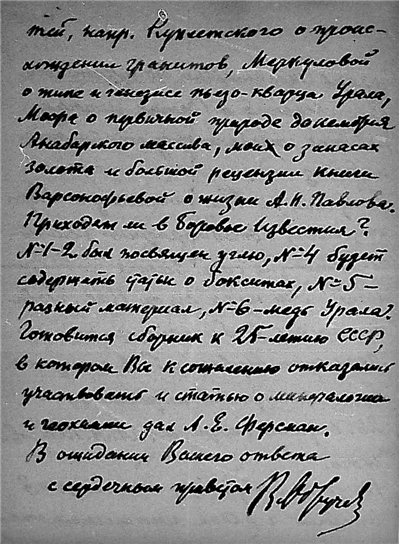 тей, напр. Куплетского о проис-
хождении гранитов, Меркуловой
о типе и генезисе пьезо-кварца Урала,
Моора о первичной природе докембрия
Анабарского массива, моих о запасах
золота и большой рецензии книги
Варсонофьевой о жизни А.П. Павлова.
Приходят ли в Боровое Известия?
№1-2 был посвящен углю, №4 будет
содержать статьи о бокситах, №5 -
разный материал, №6 - медь Урала.
Готовится сборник к 25-летию СССР,
в котором Вы к сожалению отказались
участвовать и статью о минералогии
и геохимии дал А.Е. Ферсман.
В ожидании Вашего ответа
с сердечным приветом В. Обручев